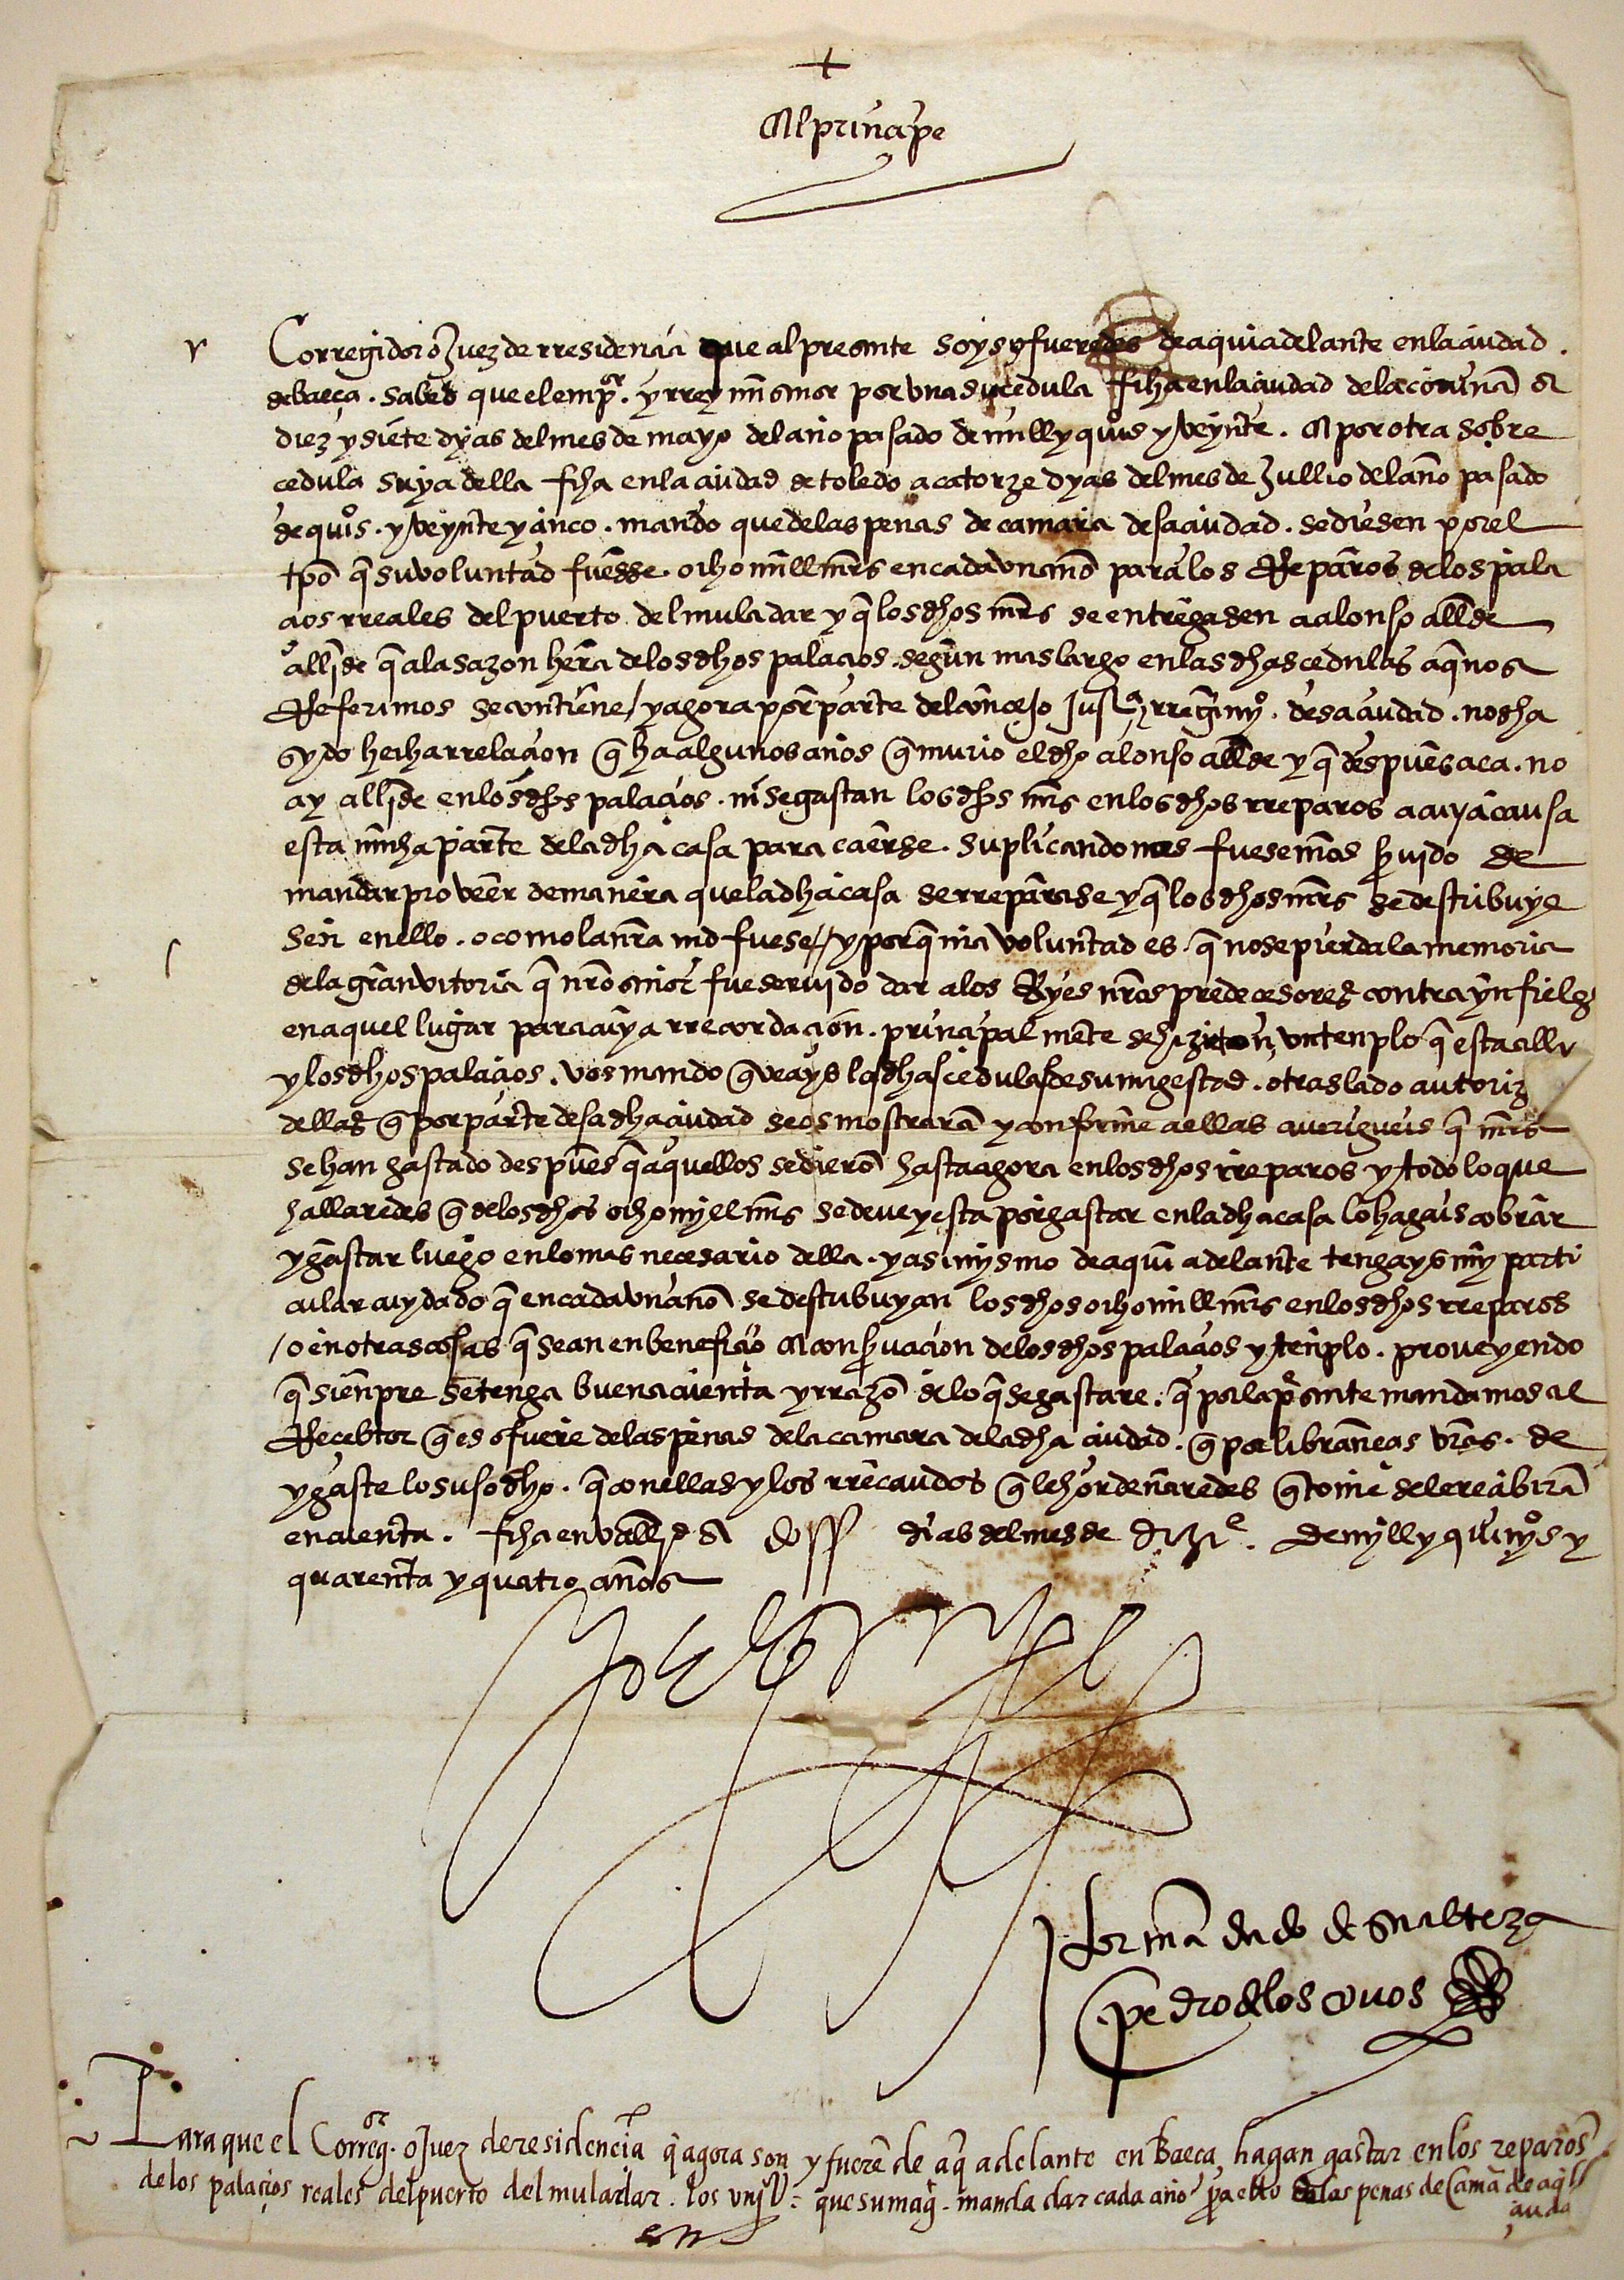 +
Al principe
Corregidor o Juez de rresidencia que al presente soys o fueredes de aqui adelante en la ciudad
de baeça . sabed que el empor. y rrey mi señor por vna su cedula fha en la ciudad de la coruña a
diez y siete dyas del mes de mayo del año pasado de mill y quios y veynte . A por otra sobre
cedula suya della fha en la ciudad de toledo a catorze dyas del mes de Jullio del año pasado
de quios . y veynte y cinco . mando que de las penas de camara desa ciudad . se diesen por el
tpo q su voluntad fuesse . ocho mill mrs en cada vn año para los Reparos de los pala
cios rreales del puerto del muladar y q los dhos mrs se entregasen a alonso allde
allde q a la sazon hera de los dhos palacios . segun mas largo en las dhas cedulas a q nos
Referimos se contiene / y agora por parte del concejo Justa y rregimyo . desa ciudad . nos ha
sydo hecha rrelacion q ha algunos años q murio el dho alonso allde y q despues aca . no
ay allde en los dhos palacios . ni se gastan los dhos mrs en los dhos rreparos a cuya causa
esta mucha parte de la dha casa para caerse . suplicandonos fuesemos seruido de
mandar proveer de manera que la dha casa se rreparase y q los dhos mrs se destribuye
sen en ello . o como la nra md fuese // y porq mi voluntad es . q no se pierda la memoria
de la gran vitoria q nro señor fue seruido dar a los Reyes nros predecesores contra ynfieles
en aquel lugar para cuya rrecordacion . principalmente se hizieron vn tenplo q esta alli
y los dhos palacios . vos mando q veays las dhas cedulas de su magestad . o traslado autoriz
dellas q por parte desa dha ciudad se os mostrara y conforme a ellas averigueis q mrs
se han gastado despues q aquellos se diero hasta agora en los dhos rreparos y todo lo que
hallaredes q de los dhos ocho myll mrs se deve y esta por gastar en la dha casa lo hagais cobrar
y gastar luego en lo mas necesario della . y asi mysmo de aqui adelante tengays my parti
cular cuydado q en cada vn año se destribuyan los dhos ocho mill mrs en los dhos rreparos
/ o en otras cosas q sean en beneficio A conseruacion de los dhos palacios y tenplo . proveyendo
q sienpre se tenga buena cuenta y rrazo de lo q se gastare . q por la presente mandamos al
Recebtor q es o fuere de las penas de la camara de la dha ciudad . q por libranças vras . de
y gaste lo suso dho . q con ellas y los rrecaudos q le hordenaredes q tome se le recibira
en cuenta . fha en valld A doss dias del mes de dize . de myll y quinyos y
quarenta y quatro años
Yo el principe
Por mandado de su alteza
pedro de los covos
Para que el Corregor. o Juez de residencia q agora son y fuere de aq adelante en Baeça, hagan gastar en los reparos
de los palacios reales del puerto del muladar . los viijU : que su mag. manda dar cada año pa ello de las penas de Cama de aqll
ciuda